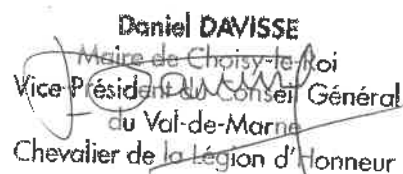 Daniel DAVISSE
Maire de Choisy-le-Roi
Vice-Président du Conseil Général
du Val-de-Marne
Chevalier de la Légion d'Honneur